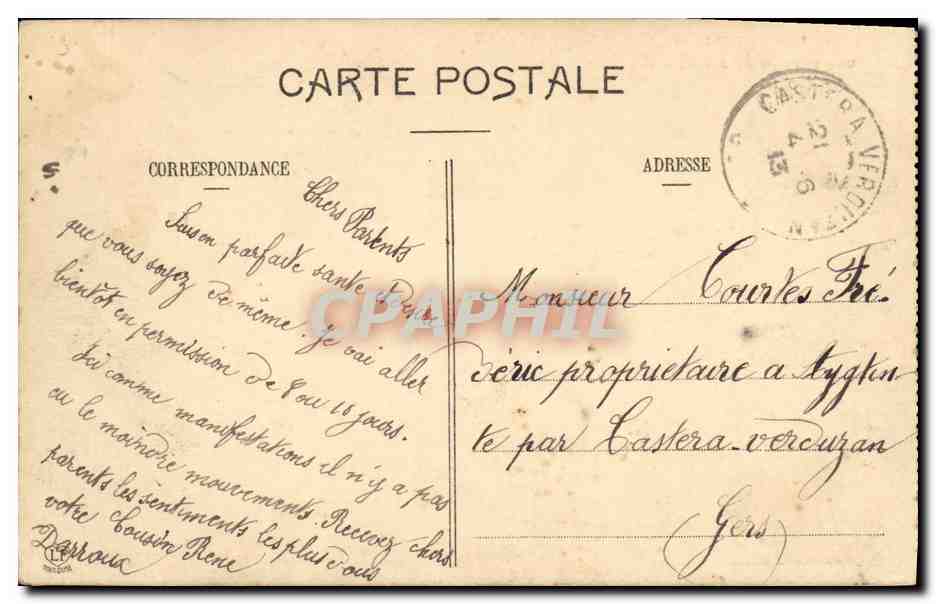 CARTE POSTALE
CORRESPONDANCE
ADRESSE
CASTERA VERDUZAN
21
4
13
Chers Parents
Suis en parfaite santé
que vous soyez de même. je vai aller
bientôt en permission de 8 ou 10 jours.
Ici comme manifestations il n'y a pas
eu le moindre mouvements. Recevez chers
parents les sentiments les plus dous
votre Cousin Rene
Darroux
Monsieur Courtes Fré-
déric proprietaire a Ayguetin-
te par Castera-verduzan
(Gers)
CPAPHIL